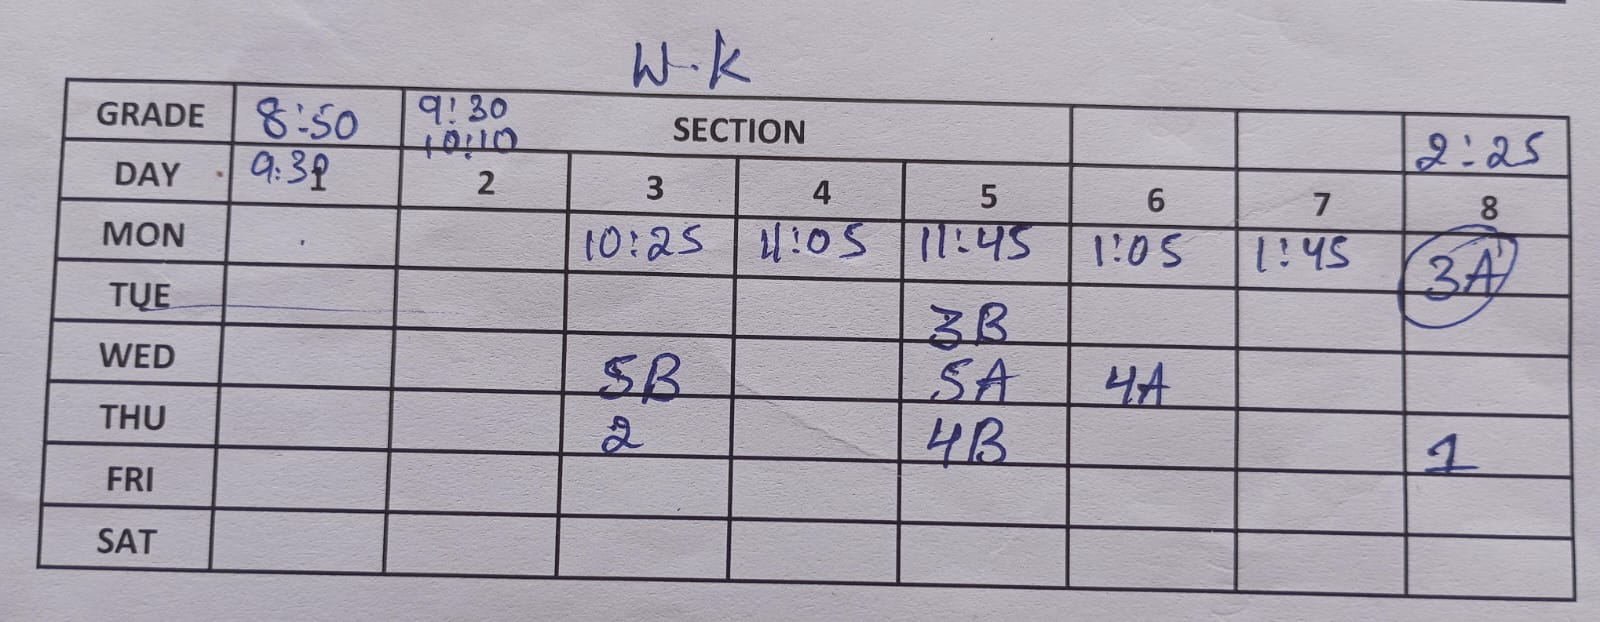 W.K
GRADE 8:50 9:30 10:10 SECTION 2:25
DAY 9:30 1 2 3 4 5 6 7 8
MON 10:25 11:05 11:45 1:05 1:45 3A
TUE 3B
WED 5B 5A 4A
THU 2 4B 1
FRI
SAT